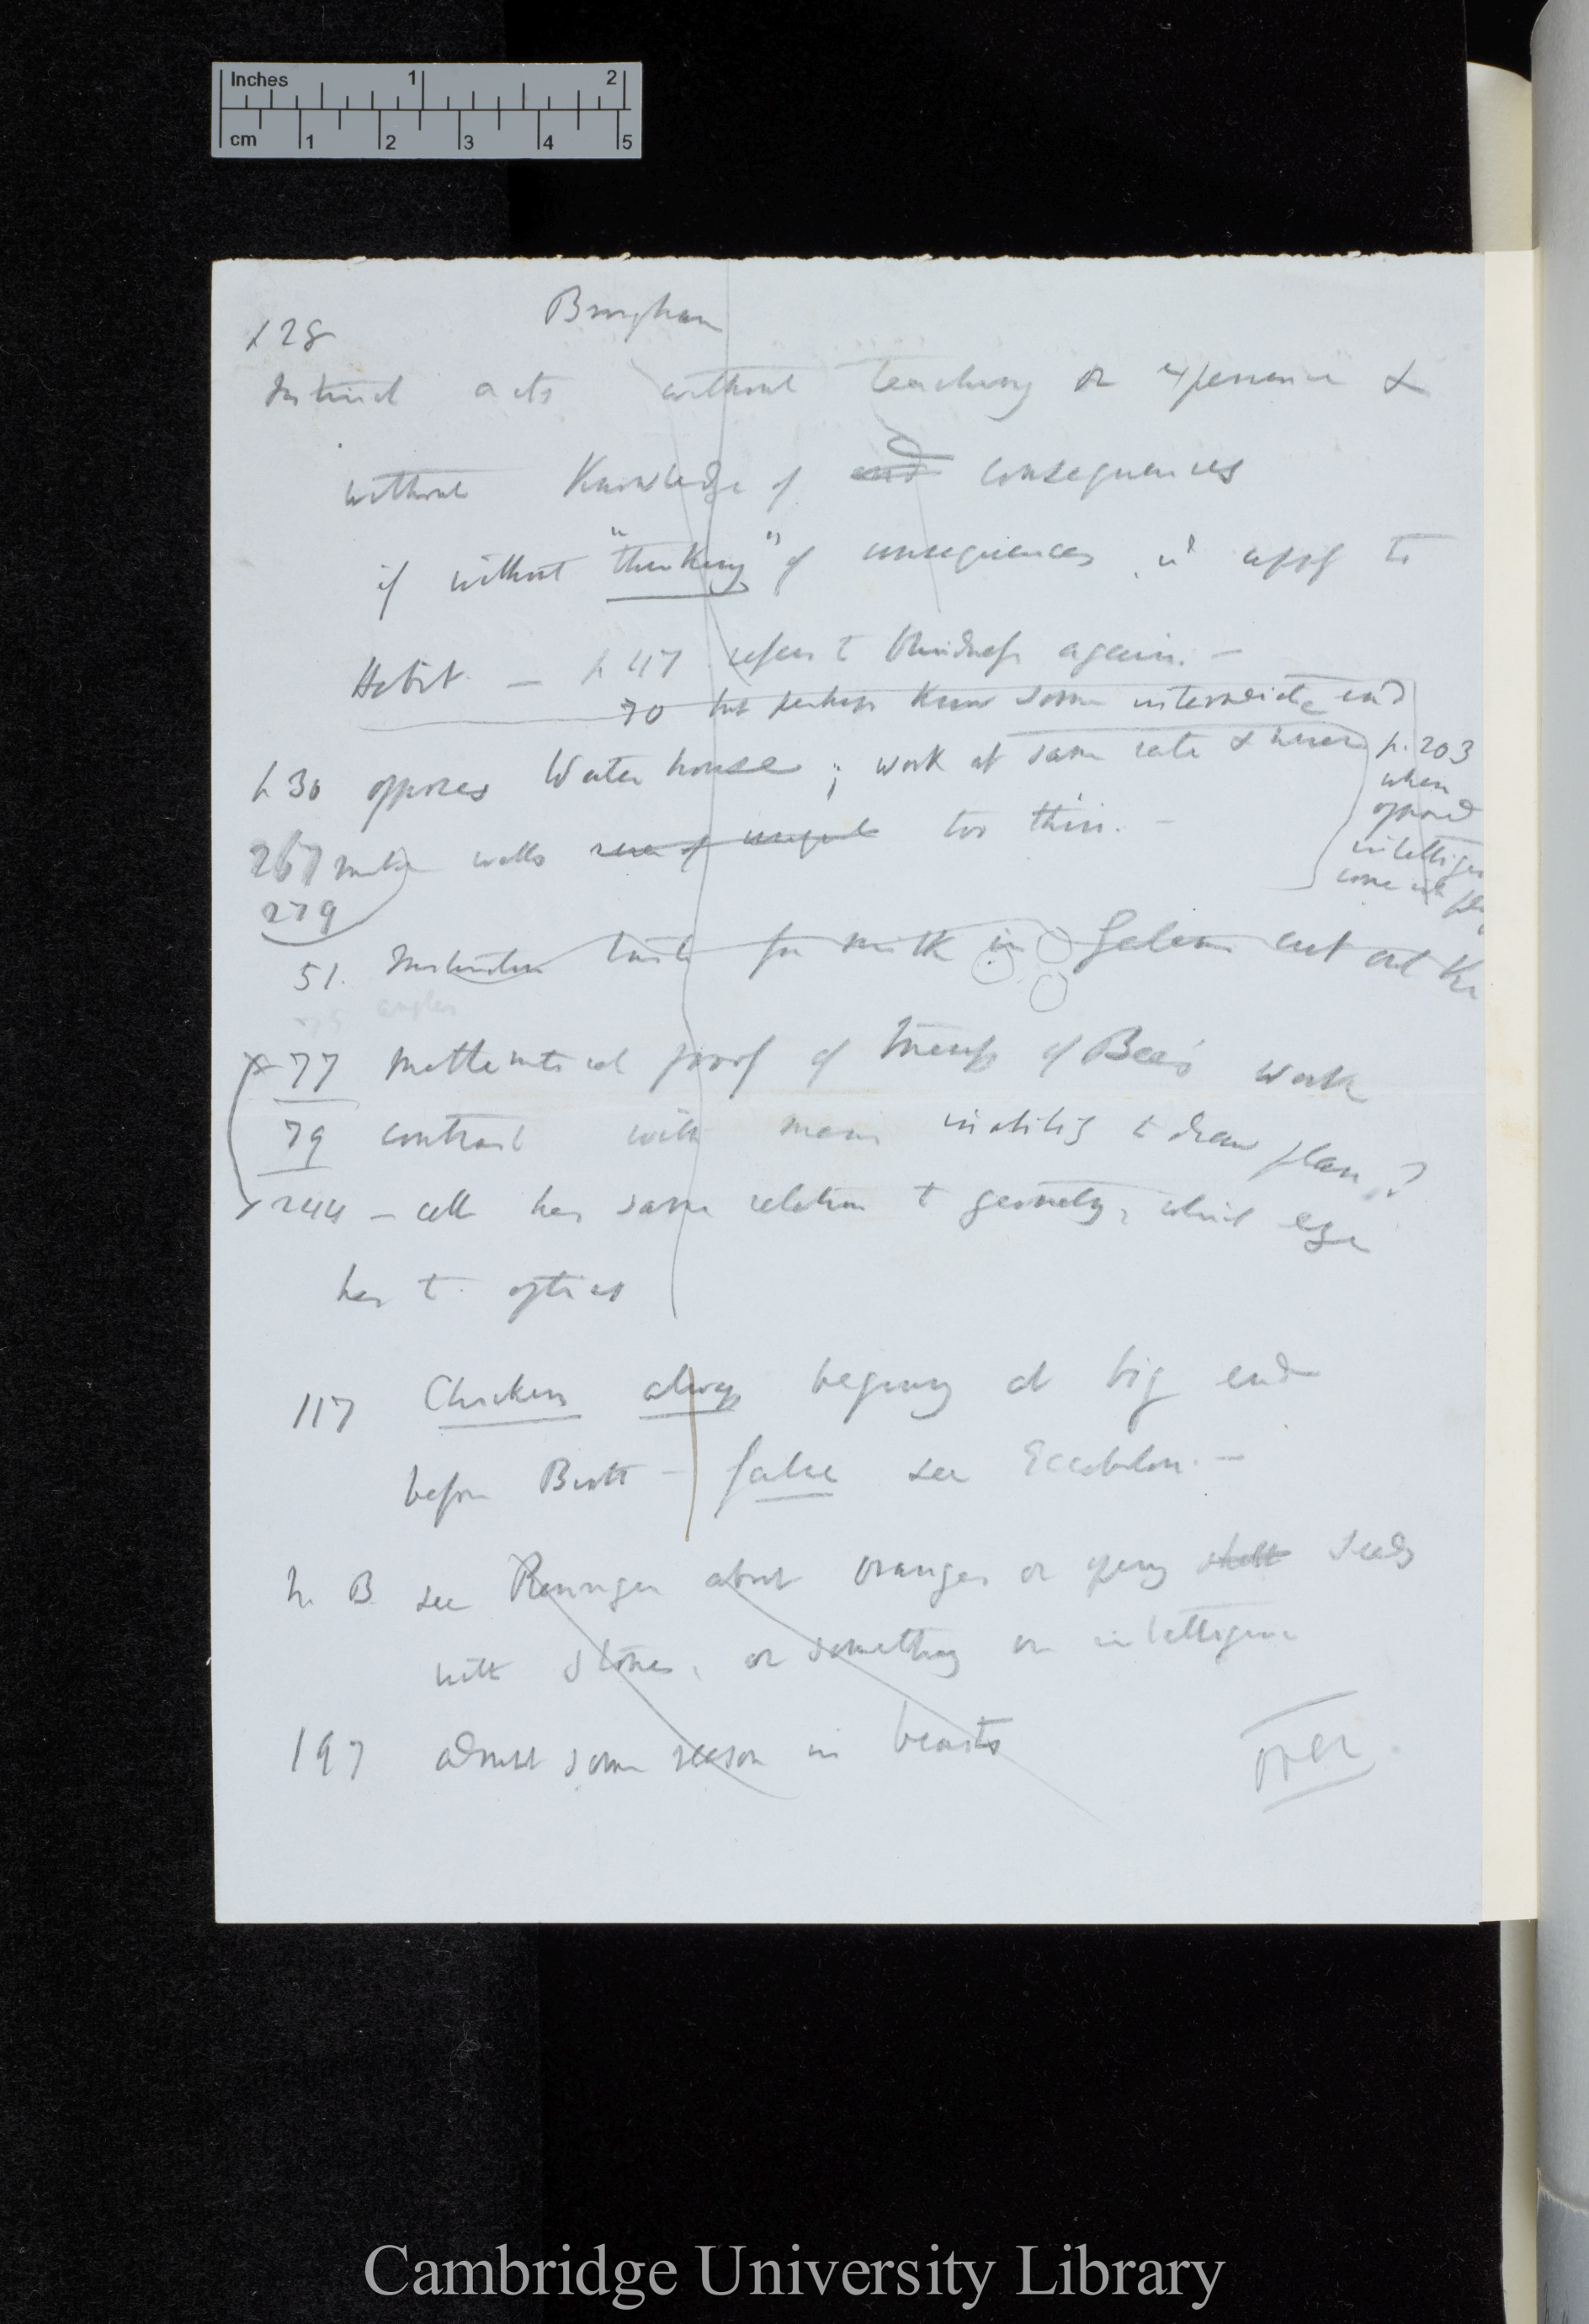 Inches 1 2
cm 1 2 3 4 5
Brougham
p 28
Instinct acts without teaching or experience &
without knowledge of end consequences
if without "thinking" of consequences, it apply to
Habit. — p 47 refers to blindness again. —
70 but perhaps know some intermediate end
p 30 opposes Waterhouse; work at same rate & never
p. 203
when
opposed
267 make walls too thin. —
279
51. Instinctive taste for milk in Galen cut out
75 angles
77 Mathematical proof of of Bees work
79 contrast with mans inability to draw plan?
244 — cell has same relation to geometry, which eye
has to optics
117 Chickens always begining at big end
before Birth — false see Eccalobeion. —
N. B. see Rengger about oranges or opening seeds
with stones, or something on intelligence
197 admit some reason in beasts
over
Cambridge University Library